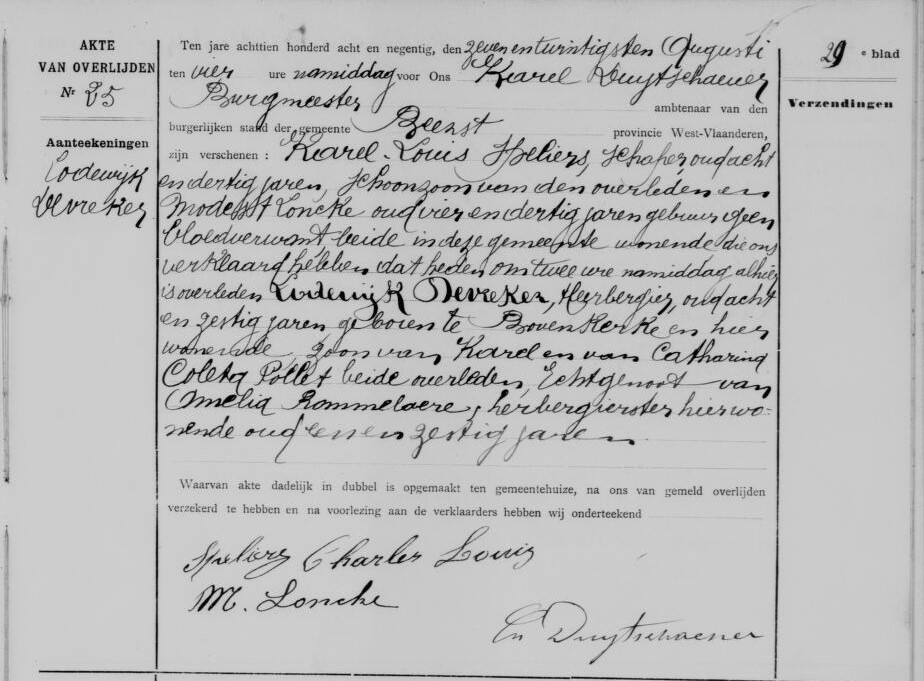 AKTE
VAN OVERLIJDEN
Nr 25
Aanteekeningen
Lodewijk
Devreker
Ten jare achttien honderd acht en negentig, den zevenentwintigsten Augusti
ten vier ure namiddag voor Ons Karel Duytschaever
Burgmeester ambtenaar van den
burgerlijken stand der gemeente Beerst provincie West-Vlaanderen,
zijn verschenen : Karel-Louis Speliers, schaper, oud acht
en dertig jaren, schoonzoon van den overleden en
Modest Loncke oud vier en dertig jaren gebuur geen
bloedverwant, beide in deze gemeente wonende die ons
verklaard hebben dat heden om twee ure namiddag alhier
is overleden Lodewijk Devreker, Herbergier, oud acht
en zestig jaren geboren te Bovenkerke en hier
wonende, zoon van Karel en van Catharina
Coleta Pollet beide overleden, Echtgenoot van
Amelia Rommelaere, herbergierster hier wo-
nende oud en zestig jaren
Waarvan akte dadelijk in dubbel is opgemaakt ten gemeentehuize, na ons van gemeld overlijden
verzekerd te hebben en na voorlezing aan de verklaarders hebben wij onderteekend
Speliers Charles Louis
M. Loncke
Duytschaever
29 e blad
Verzendingen